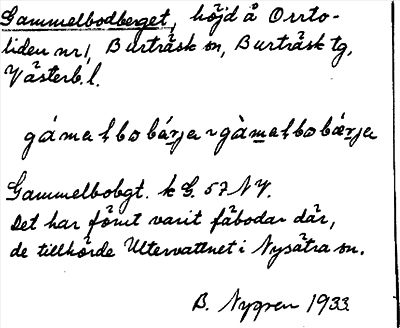 Gammelbodberget, höjd å Orrto-
liden nr 1, Burträsk sn, Burträsk tg,
Västerb. l.
gámaḷbobárja ~ gàmaḷbobærja
Gammelbobgt. k G. 57 NV.
Det har förut varit fäbodar där,
de tillhörde Ultervattnet i Nysätra sn.
B. Nygren 1933.